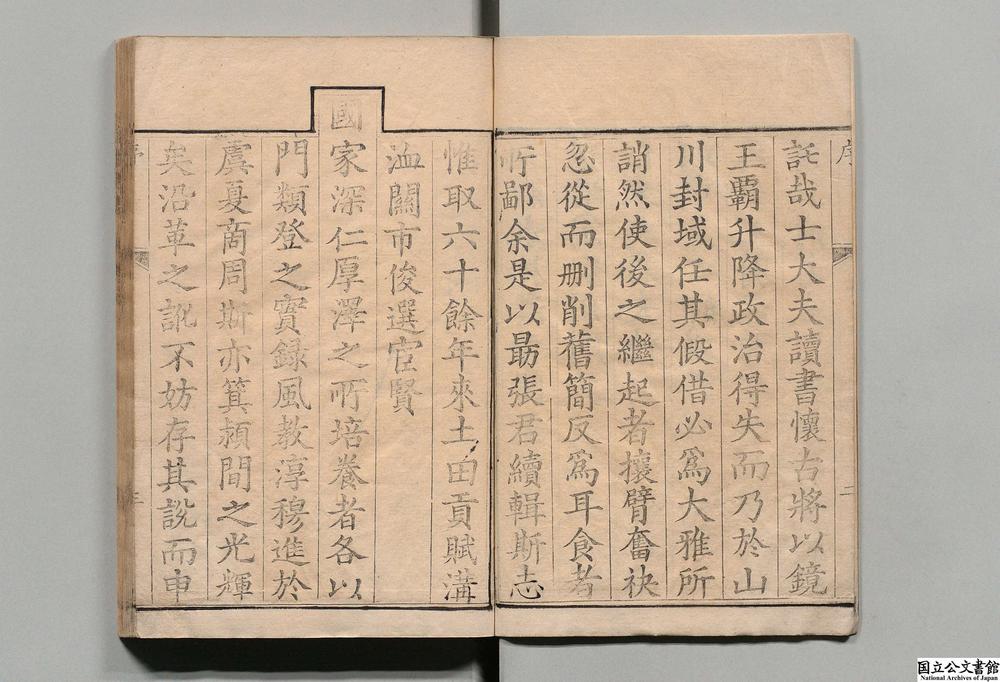 序
託哉士大夫讀書懷古將以鏡
王覇升降政治得失而乃於山
川封域任其假借必爲大雅所
誚然使後之繼起者攘臂奮袂
忽從而删削舊簡反爲耳食者
所鄙余是以勗張君續輯斯志
惟取六十餘年來土田貢賦溝
洫關市俊選宦賢
國家深仁厚澤之所培養者各以
門類登之實録風教淳穆進於
虞夏商周斯亦箕潁間之光輝
矣沿革之訛不妨存其説而申
二
国立公文書館
National Archives of Japan